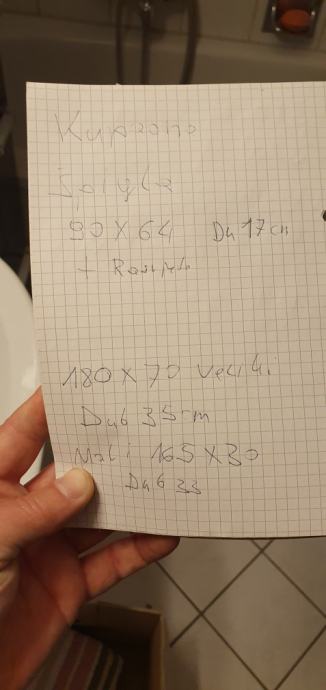 Kupaono
Špigla
90 X 64 Du 17 cm
+
180 X 70 Veliki
Dub 35 cm
Mali 165 X 30
Dub 33